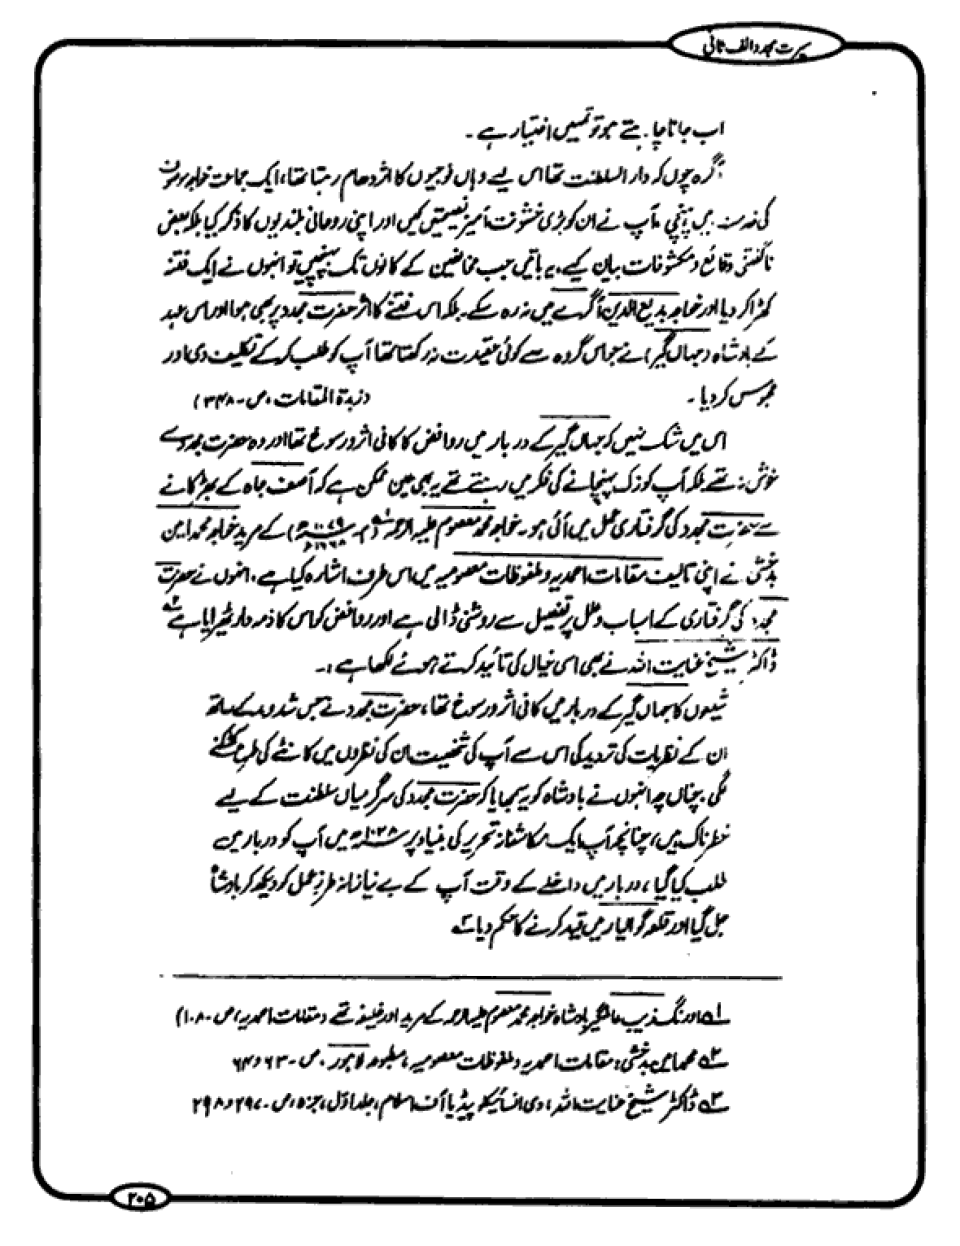 سیرت مجدد الف ثانی
اب جانا چاہتے ہو تو تمہیں اختیار ہے۔
آگرہ چوں کہ دار السلطنت تھا اس لیے وہاں فوجیوں کا اژدحام رہتا تھا، ایک جماعت خواجہ موصوف
کی خدمت میں پہنچی، آپ نے ان کو بڑی خشونت آمیز نصیحتیں کیں اور اپنی روحانی بلندیوں کا ذکر کیا بلکہ بعض
ناگفتنی وقائع و مکشوفات بیان کیے۔ یہ باتیں جب مخالفین کے کانوں تک پہنچیں تو انہوں نے ایک فتنہ
کھڑا کر دیا اور خواجہ بدیع الدین آگرے میں نہ رہ سکے۔ بلکہ اس فتنے کا اثر حضرت مجدد پر بھی ہوا اور اس عہد
کے بادشاہ (جہاں گیر) نے جو اس گروہ سے کوئی عقیدت نہ رکھتا تھا آپ کو طلب کر کے تکلیف دی اور
محبوس کر دیا۔ (زبدۃ المقامات، ص۔ ۳۴۸)
اس میں شک نہیں کہ جہاں گیر کے دربار میں روافض کا کافی اثر و رسوخ تھا اور وہ حضرت مجدد سے
خوش نہ تھے بلکہ آپ کو زک پہنچانے کی فکر میں رہتے تھے یہ بھی عین ممکن ہے کہ آصف جاہ کے بھڑکانے
سے حضرت مجدد کی گرفتاری عمل میں آئی ہو۔ خواجہ محمد معصوم علیہ الرحمہ ؎۱ (م۔ ۱۰۷۹ھ / ۱۶۶۸ء) کے مرید خواجہ محمد امین
بدخشی نے اپنی تالیف مقامات احمدیہ و ملفوظات معصومیہ میں اس طرف اشارہ کیا ہے۔ انہوں نے حضرت
مجدد کی گرفتاری کے اسباب و علل پر تفصیل سے روشنی ڈالی ہے اور روافض کو اس کا ذمہ دار ٹھہرایا ہے ؎۲
ڈاکٹر شیخ عنایت اللہ نے بھی اسی خیال کی تائید کرتے ہوئے لکھا ہے :۔
شیعوں کا جہاں گیر کے دربار میں کافی اثر و رسوخ تھا، حضرت مجدد نے جس شد و مد کے ساتھ
ان کے نظریات کی تردید کی اس سے آپ کی شخصیت ان کی نظروں میں کانٹے کی طرح کھٹکنے
لگی چناں چہ انہوں نے بادشاہ کو یہ سمجھایا کہ حضرت مجدد کی سرگرمیاں سلطنت کے لیے
خطرناک ہیں، چنانچہ آپ ایک مکاشفانہ تحریر کی بنیاد پر ۱۰۲۸ھ میں آپ کو دربار میں
طلب کیا گیا، دربار میں داخلے کے وقت آپ کے بے نیازانہ طرز عمل کو دیکھ کر بادشاہ
جل گیا اور قلعہ گوالیار میں قید کرنے کا حکم دیا ؎۳
؎۱ اورنگ زیب عالمگیر بادشاہ خواجہ محمد معصوم علیہ الرحمہ کے مرید اور خلیفہ تھے (مقامات احمدیہ، ص۔ ۱۰۸)
؎۲ محمد امین بدخشی: مقامات احمدیہ و ملفوظات معصومیہ، مطبوعہ لاہور، ص۔ ۶۳ و ۶۴
؎۳ ڈاکٹر شیخ عنایت اللہ، دی انسائیکلوپیڈیا آف اسلام، جلد اوّل، جزء ۵، ص۔ ۲۹۷ و ۲۹۸
۲۰۵